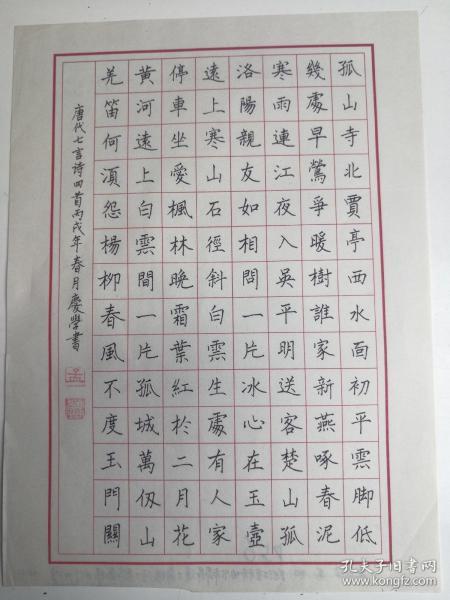 孤山寺北賈亭西水面初平雲脚低
幾處早鶯爭暖樹誰家新燕啄春泥
寒雨連江夜入吳平明送客楚山孤
洛陽親友如相問一片冰心在玉壺
遠上寒山石徑斜白雲生處有人家
停車坐愛楓林晚霜葉紅於二月花
黃河遠上白雲間一片孤城萬仞山
羌笛何湏怨楊柳春風不度玉門關
唐代七言詩四首丙戌年春月慶學書
孔夫子旧书网